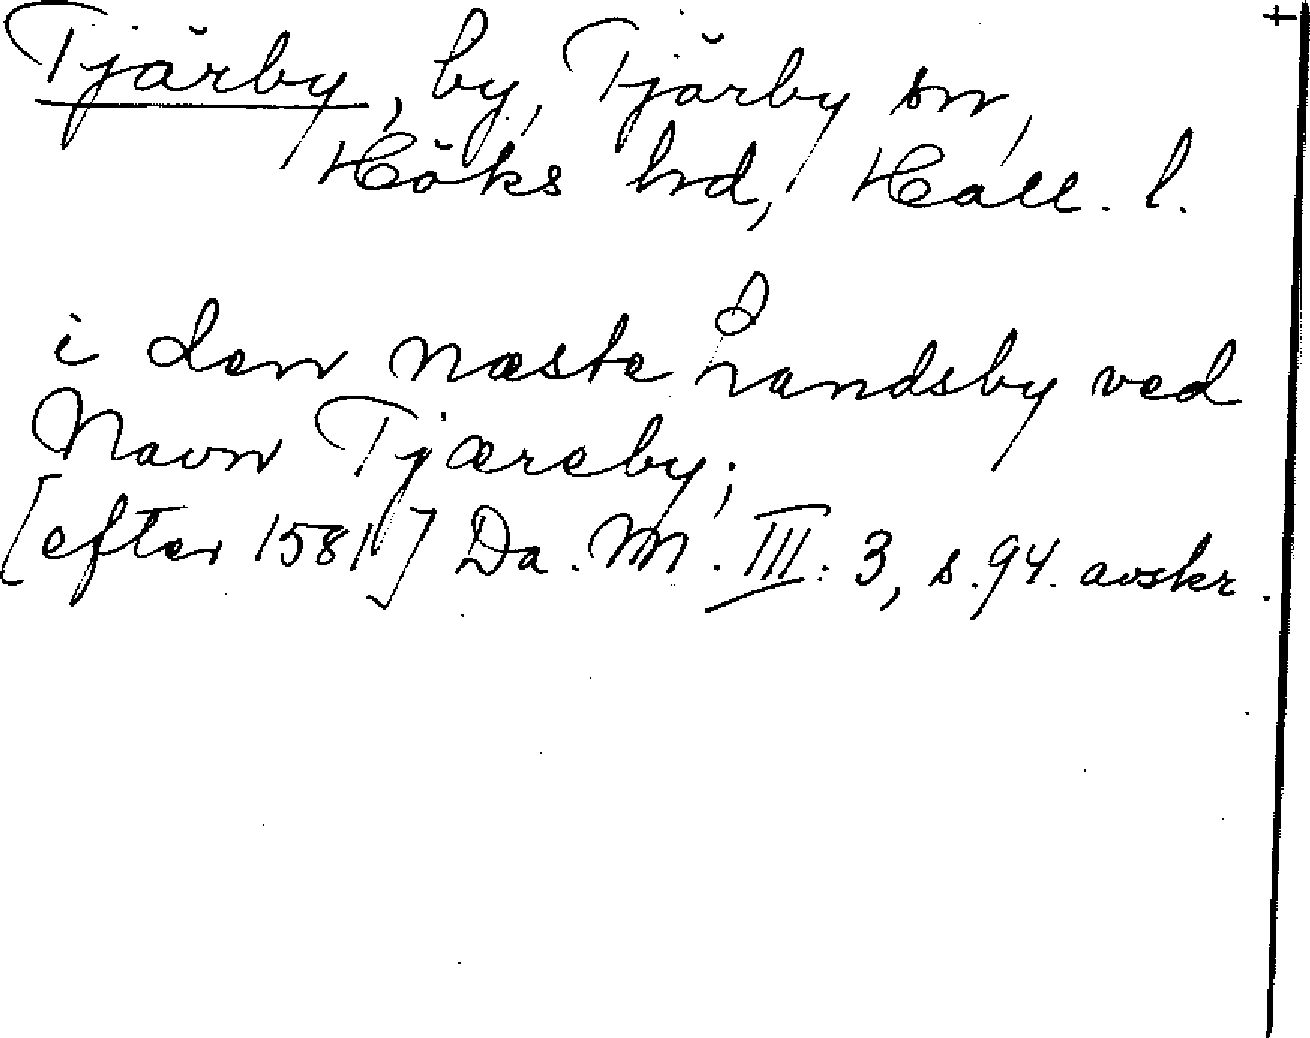 Tjärby, by, Tjärby sn, +
Höks hd, Hall. l.
i den næste Landsby ved
Navn Tjæreby;
[efter 1581] Da. M. III. 3, s. 94. avskr.